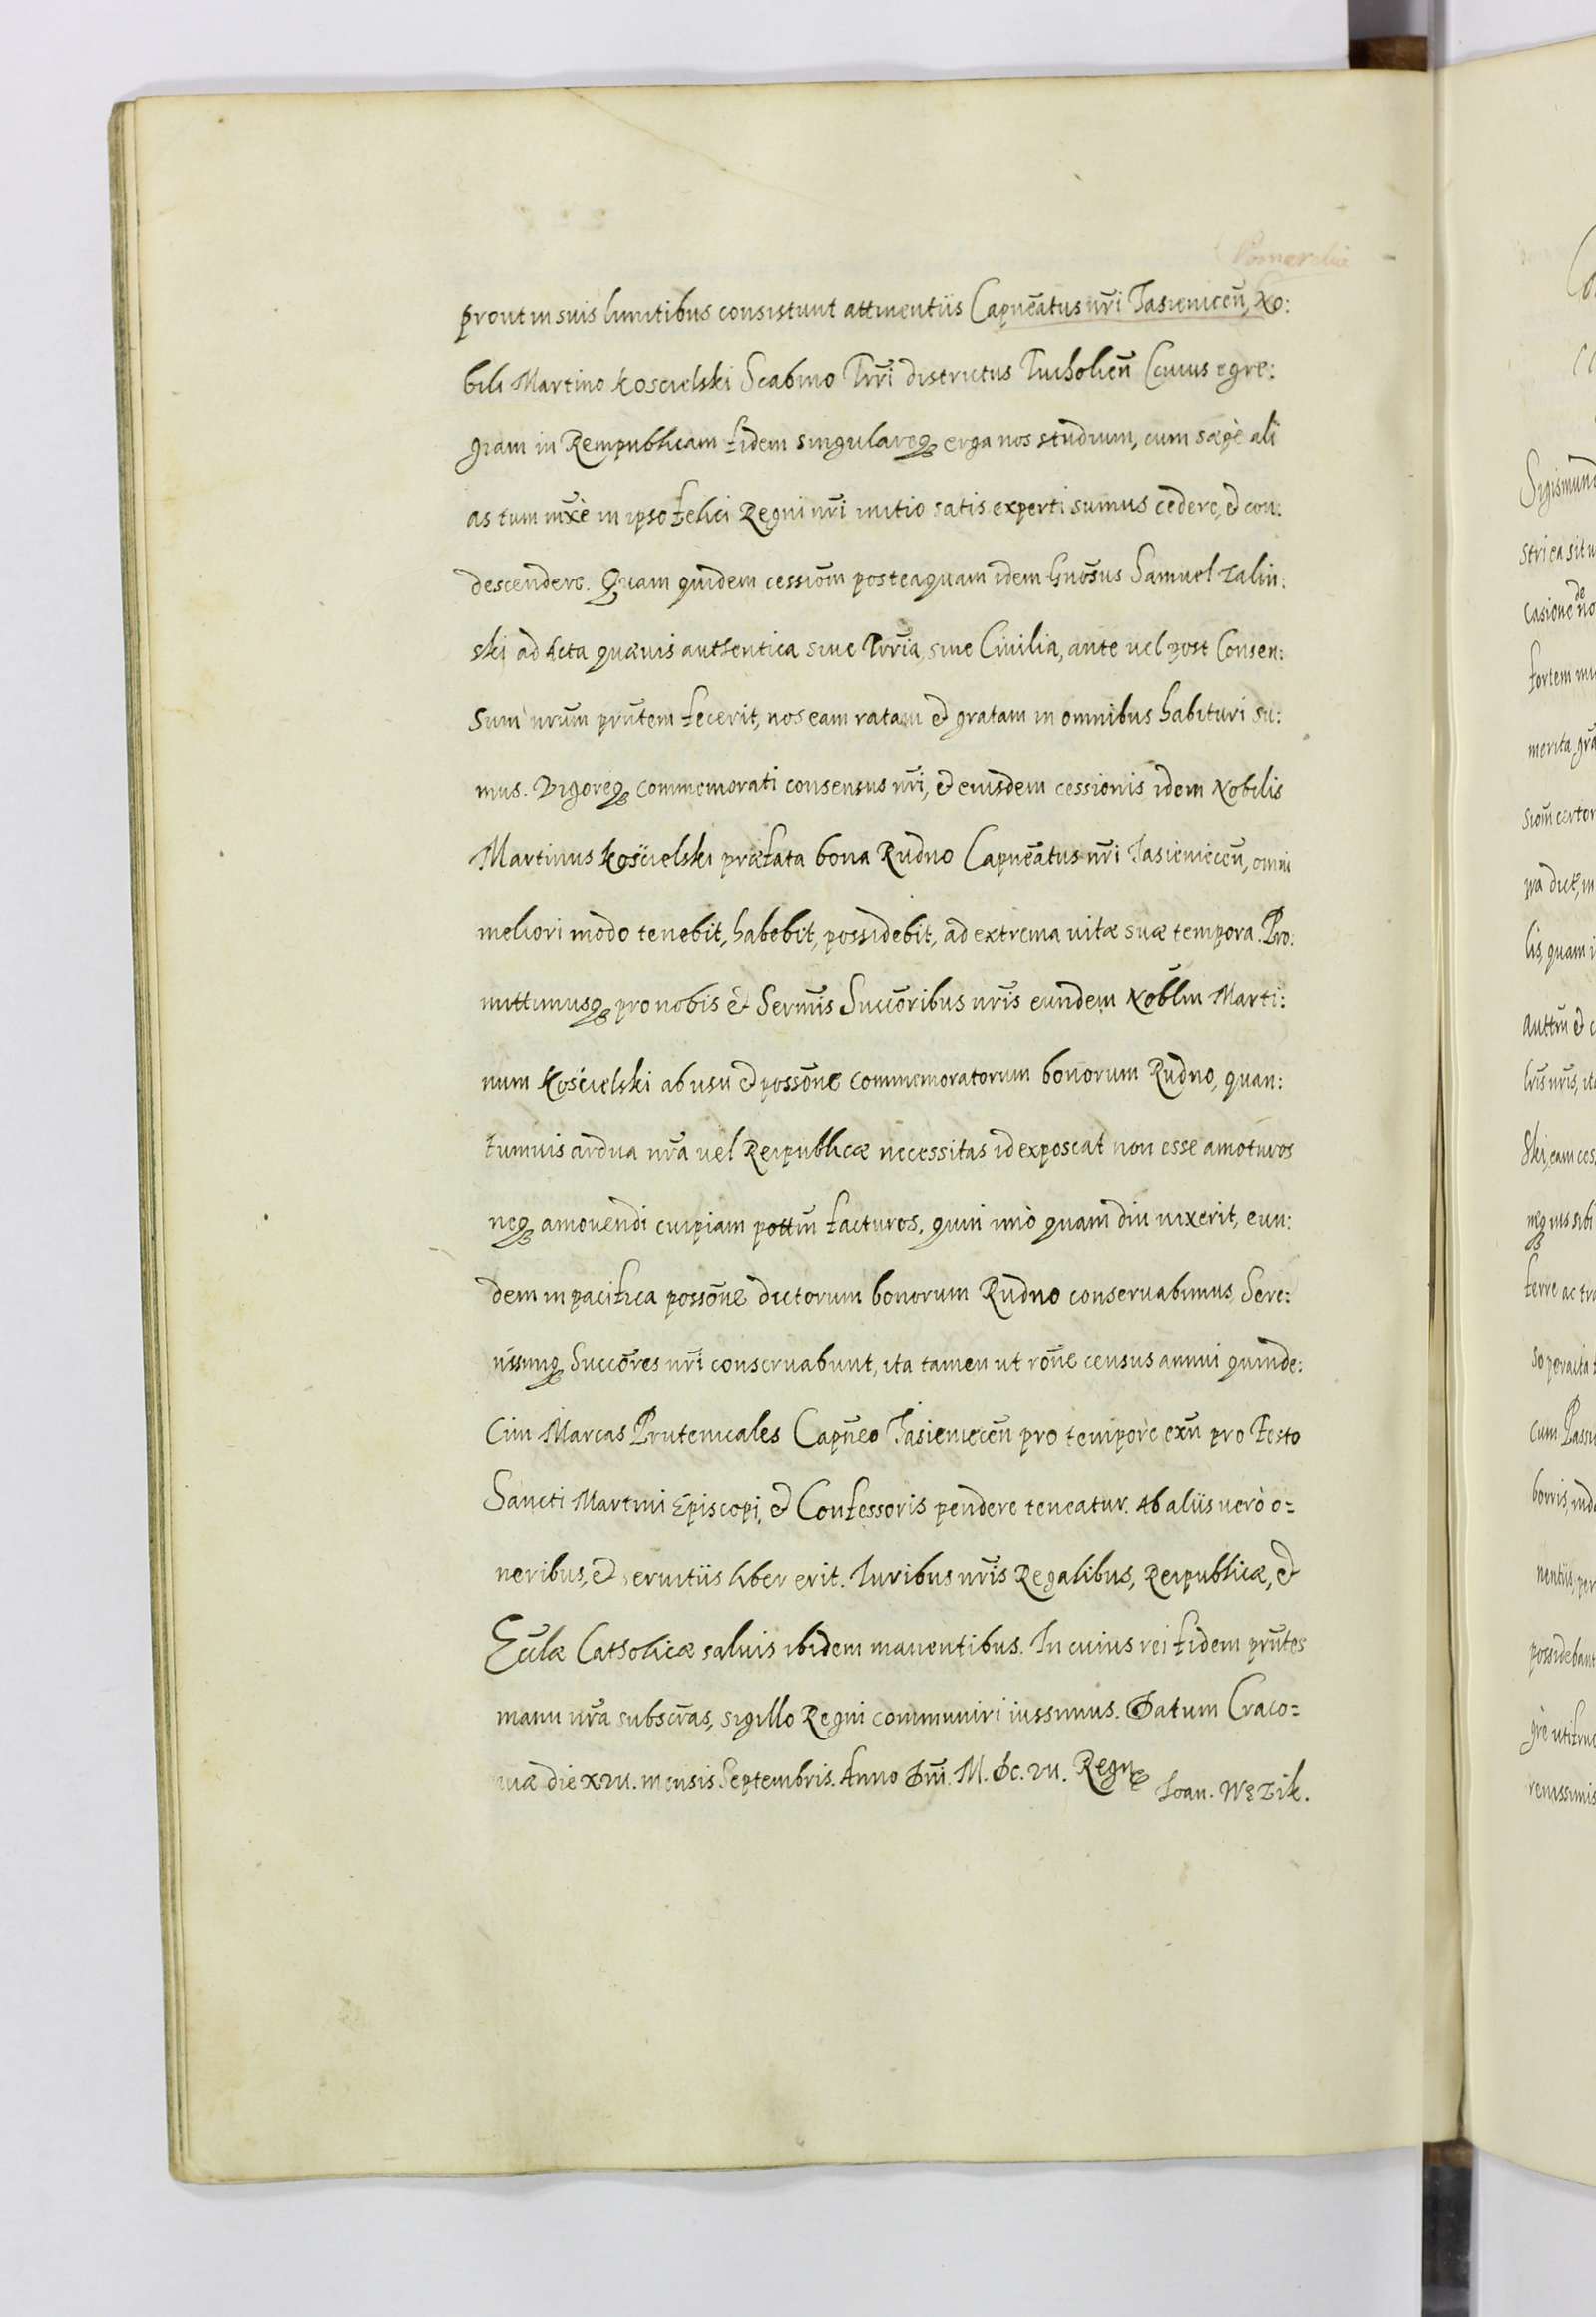 Pomeraliae
prout in suis limitibus consistunt attinentiis Capnēatus nr̄i Jasienicen̄, No:
bili Martino Koscielski Scabino Trr̄i districtus Tucholien̄ (cuius egre:
giam in Rempublicam fidem singulareq; erga nos studium, cum saepè ali
as tum mx̄è in ipso felici Regni nr̄i initio satis experti sumus cedere, et con:
descendere. Quam quidem cessiom̄ posteaquam idem Gnōsus Samuel Zalin:
ski ad Acta quaevis authentica siue Trr̄ia, siue Ciuilia, ante uel post Consen:
sum nr̄um prn̄tem fecerit, nos eam ratam et gratam in omnibus habituri su:
mus. Vigoreq; commemorati consensus nr̄i, et eiusdem cessionis idem Nobilis
Martinus Kościelski praefata bona Rudno Capnēatus nr̄i Jasieniecen̄, omni
meliori modo tenebit, habebit, possidebit, ad extrema uitae suae tempora. Pro:
mittimusq; pro nobis et Serm̄is Succōribus nr̄is eundem Nobl̄m Marti:
num Kościelski ab usu et possōne commemoratorum bonorum Rudno, quan:
tumuis ardua nr̄a uel Reipublicae necessitas id exposcat non esse amoturos
neq; amouendi cuipiam pottm̄ facturos, quin imò quam diu uixerit, eun:
dem in pacifica possōne dictorum bonorum Rudno conseruabimus, Sere:
nissimiq; Succōres nr̄i conseruabunt, ita tamen ut rōne census annui quinde:
cim Marcas Prutenicales Capn̄eo Jasieniecen̄ pro tempore exn̄ pro Festo
Sancti Martini Episcopi, et Confessoris pendere teneatur. Ab aliis uerò o=
neribus, et seruitiis liber erit. Iuribus nr̄is Regalibus, Reipublicae, et
Eccl̄ae Catholicae saluis ibidem manentibus. In cuius rei fidem prn̄tes
manu nr̄a subscr̄as, sigillo Regni communiri iussimus. Datum Craco=
uiae die XVII. mensis Septembris. Anno Dn̄i. M. DC. VII. Regnq;
Ioan. Wężik.